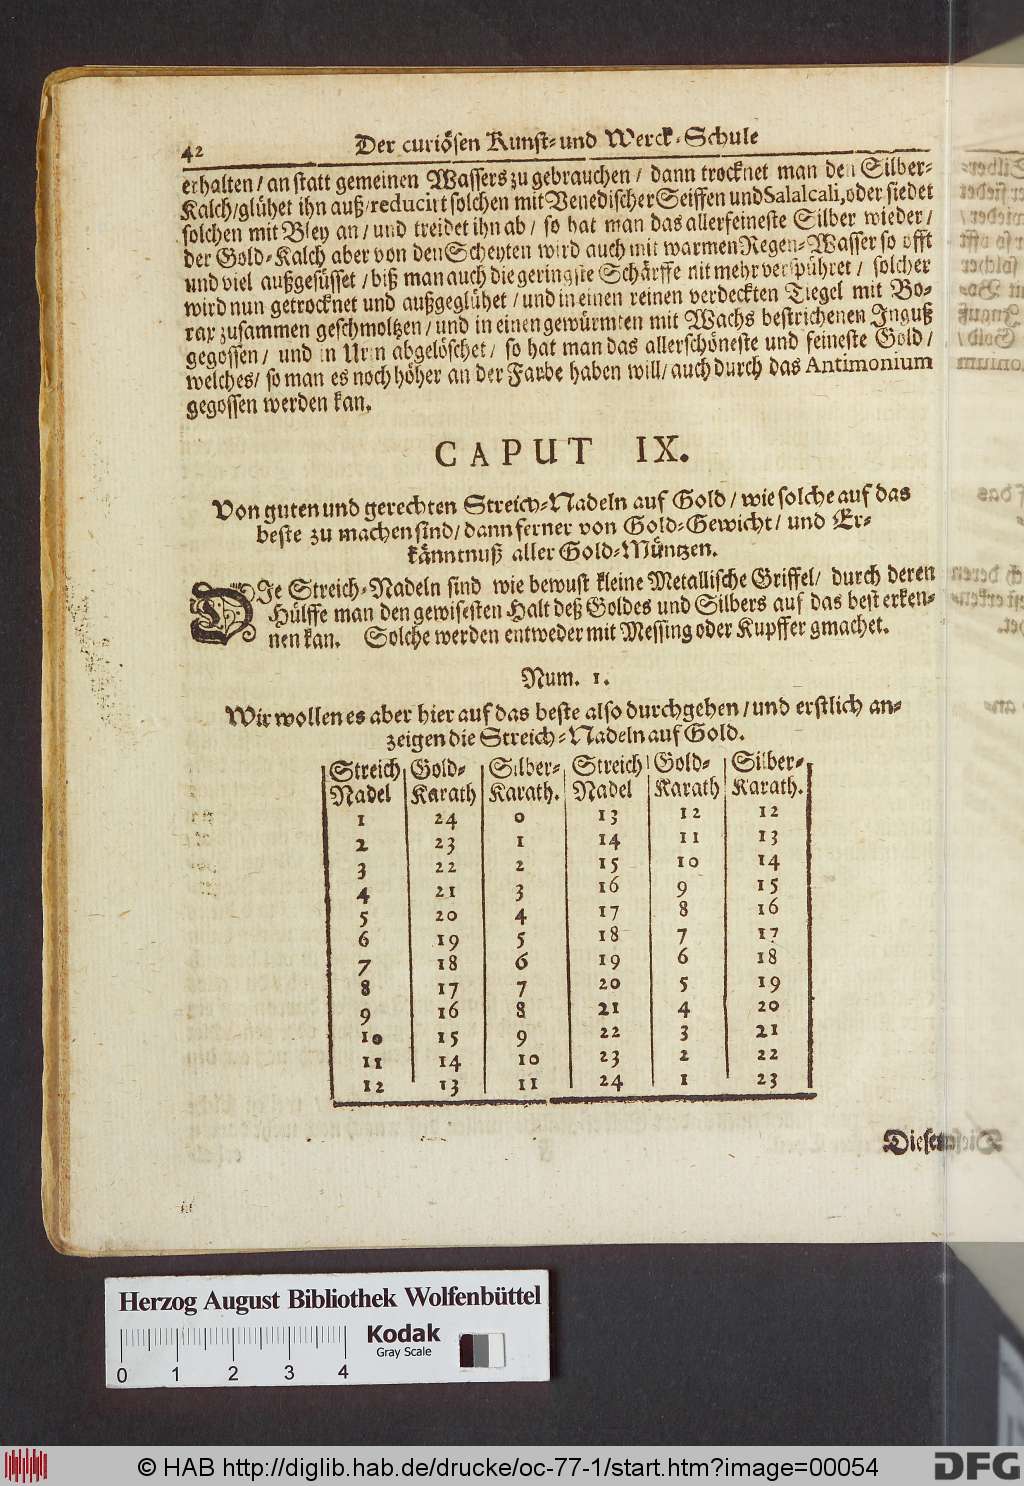 42 Der curiösen Kunst- und Werck-Schule
erhalten / an statt gemeinen Wassers zu gebrauchen / dann trocknet man den Silber-
Kalch / glühet ihn auß / reducirt solchen mit Venedischer Seiffen und Salalcali, oder siedet
solchen mit Bley an / und treidet ihn ab / so hat man das allerfeineste Silber wieder /
der Gold-Kalch aber von den Scheyten wird auch mit warmen Regen-Wasser so offt
und viel außgesüsset / biß man auch die geringste Schärffe nit mehr verspühret / solcher
wird nun getrocknet und außgeglühet / und in einen reinen verdeckten Tiegel mit Bo-
rax zusammen geschmoltzen / und in einen gewürmten mit Wachs bestrichenen Inguß
gegossen / und in Urin abgelöschet / so hat man das allerschöneste und feineste Gold /
welches / so man es noch höher an der Farbe haben will / auch durch das Antimonium
gegossen werden kan.
CAPUT IX.
Von guten und gerechten Streich-Nadeln auf Gold / wie solche auf das
beste zu machen sind / dann ferner von Gold-Gewicht / und Er-
känntnuß aller Gold-Müntzen.
DIe Streich-Nadeln sind wie bewust kleine Metallische Griffel / durch deren
Hülffe man den gewisesten Halt deß Goldes und Silbers auf das best erken-
nen kan. Solche werden entweder mit Messing oder Kupffer gmachet.
Num. 1.
Wir wollen es aber hier auf das beste also durchgehen / und erstlich an-
zeigen die Streich-Nadeln auf Gold.
Streich Gold- Silber- Streich Gold- Silber-
Nadel Karath Karath. Nadel Karath Karath.
1 24 0 13 12 12
2 23 1 14 11 13
3 22 2 15 10 14
4 21 3 16 9 15
5 20 4 17 8 16
6 19 5 18 7 17
7 18 6 19 6 18
8 17 7 20 5 19
9 16 8 21 4 20
10 15 9 22 3 21
11 14 10 23 2 22
12 13 11 24 1 23
Herzog August Bibliothek Wolfenbüttel
Kodak
Gray Scale
0 1 2 3 4
© HAB http://diglib.hab.de/drucke/oc-77-1/start.htm?image=00054
DFG